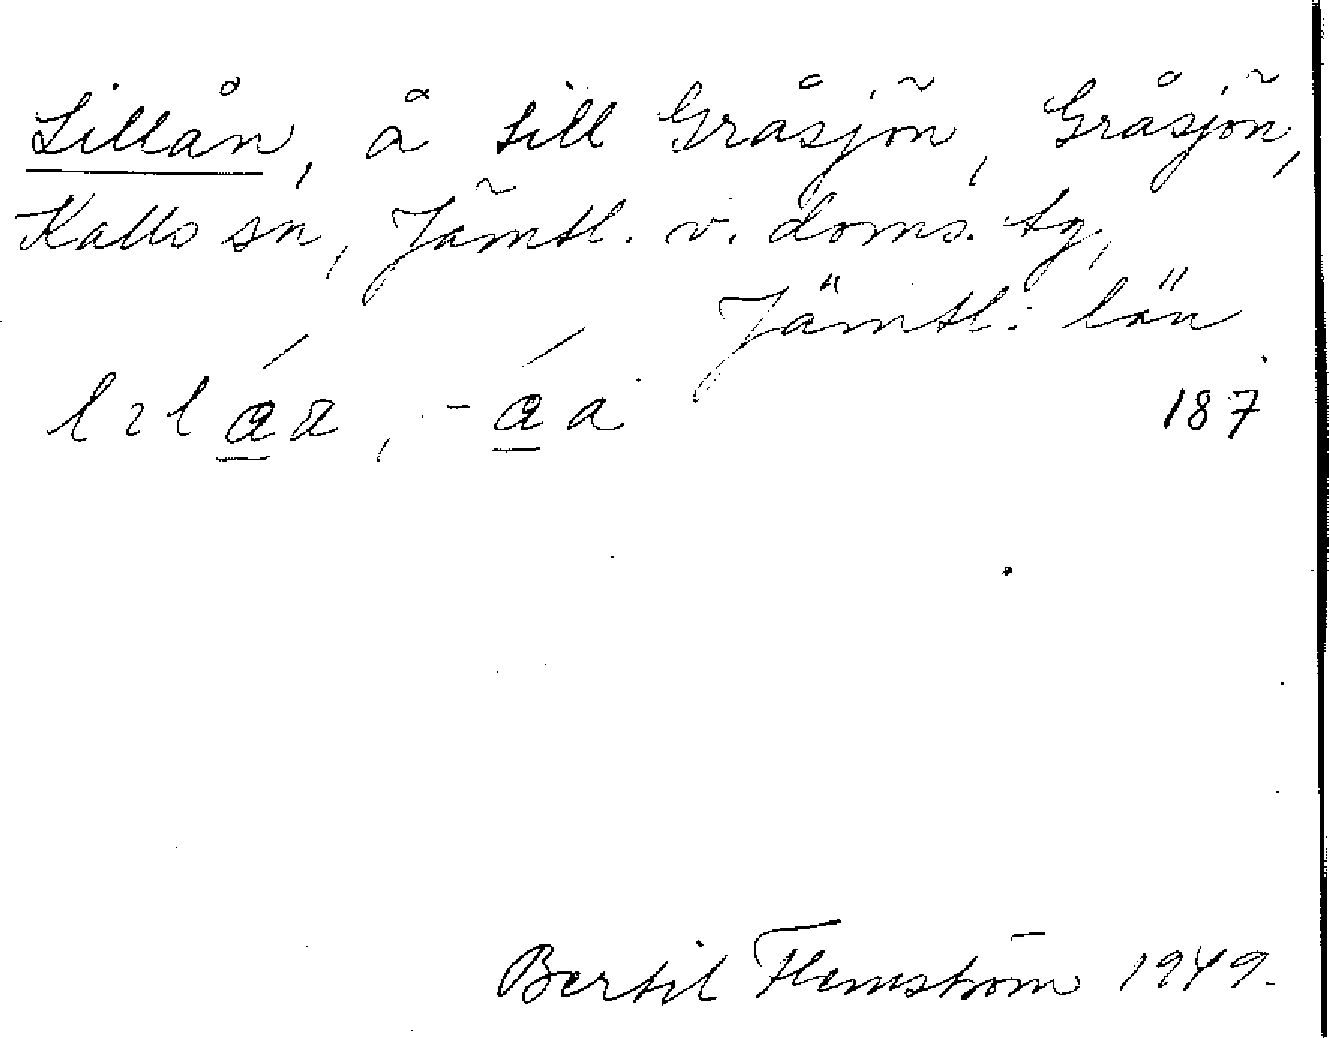 Lillån, å till Gråsjön, Gråsjön,
Kalls sn, Jämtl. v. doms. tg,
Jämtl. län
187
Bertil Flemström 1949.